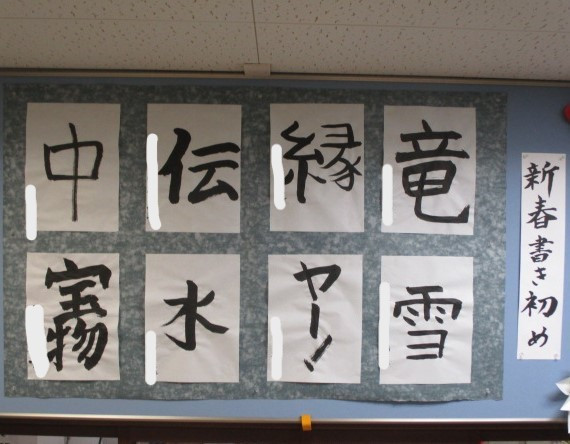 新春書き初め
竜
縁
伝
中
雪
ヤーッ
水
宝物